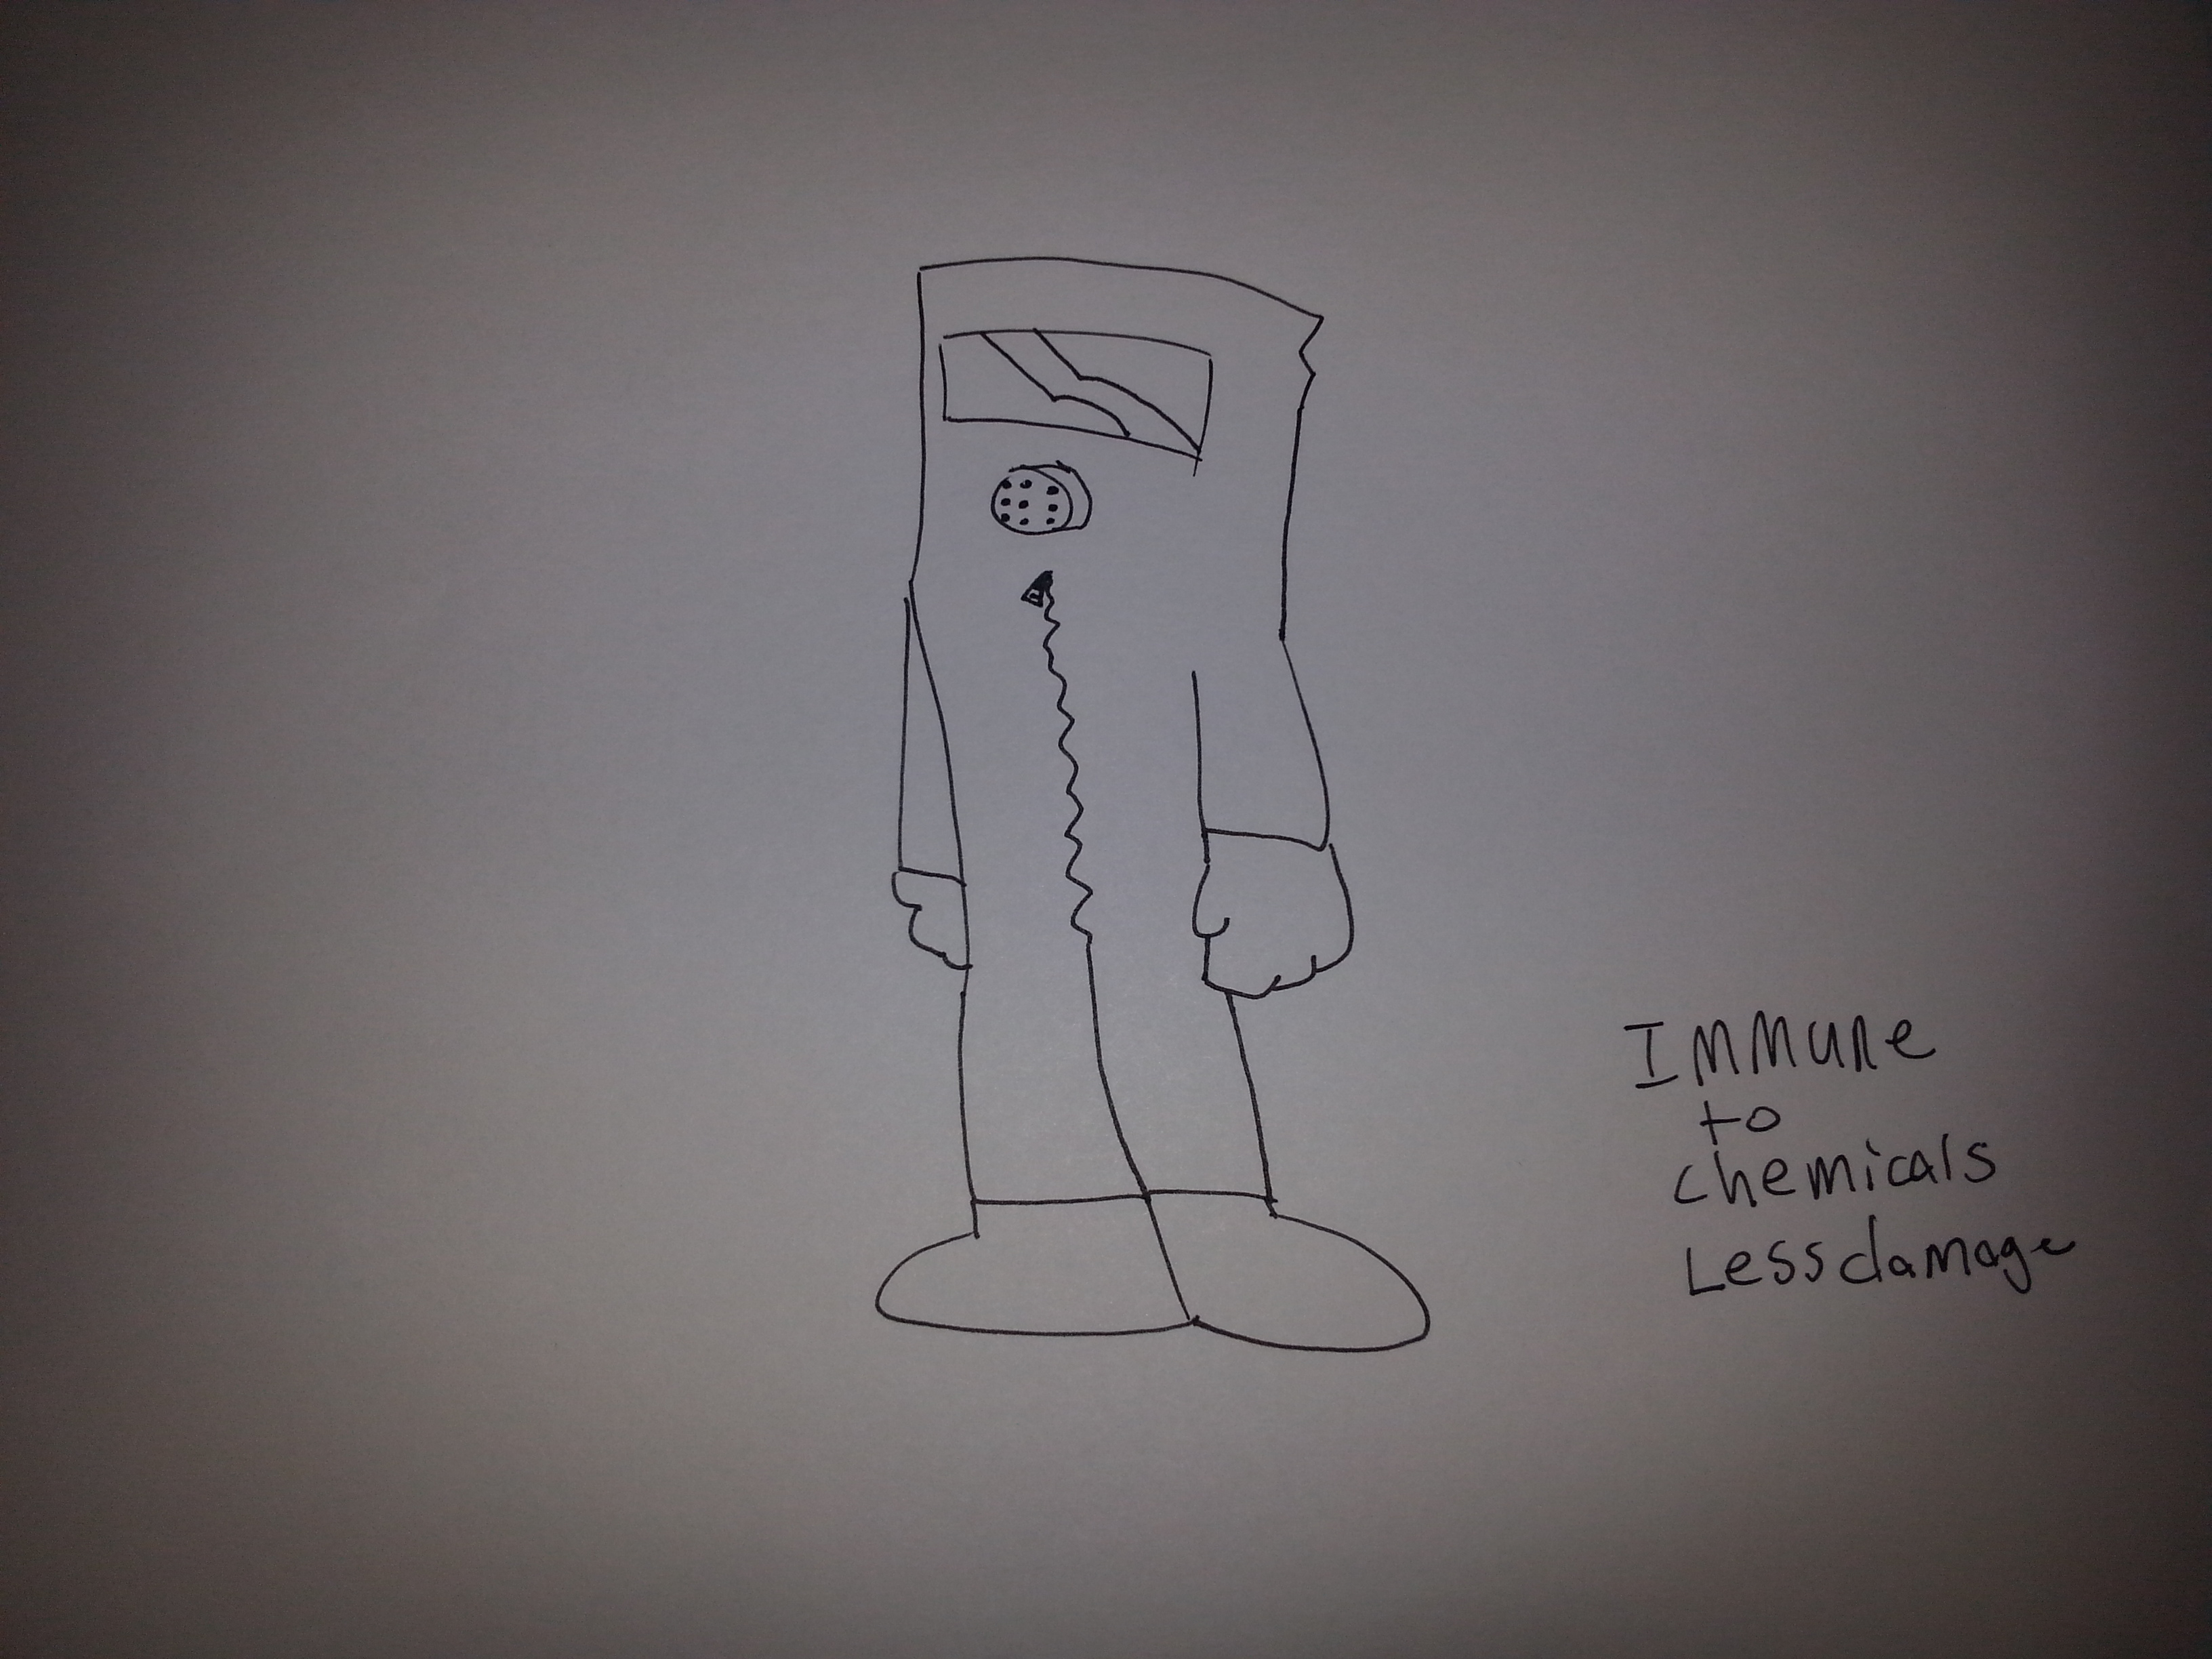 Immune
to
chemicals
Less damage